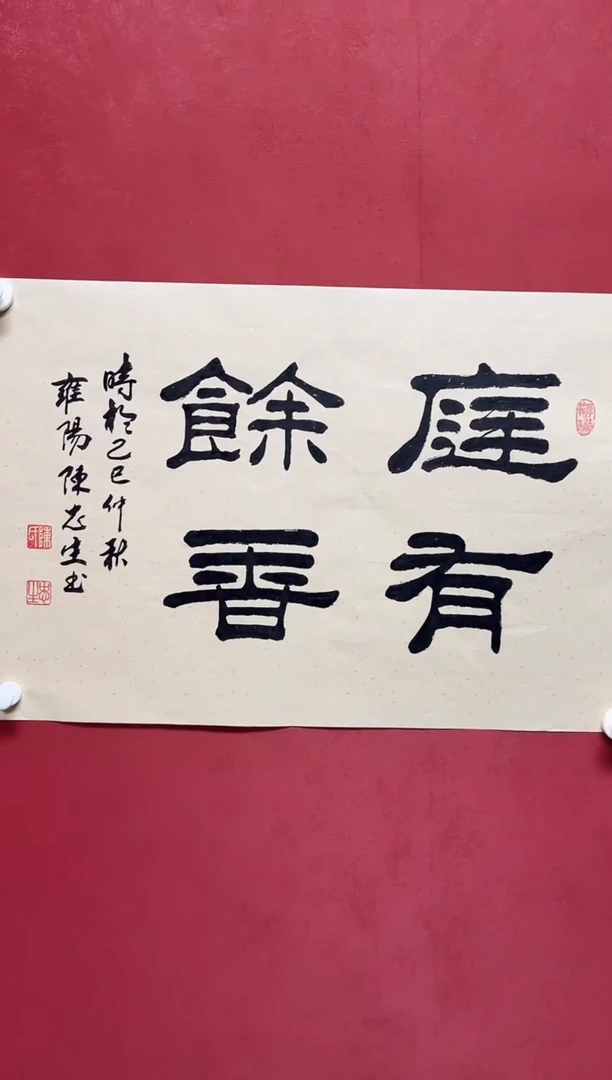 庭有
餘香
時於乙巳仲秋
雍陽陳志生書
陳氏
志生